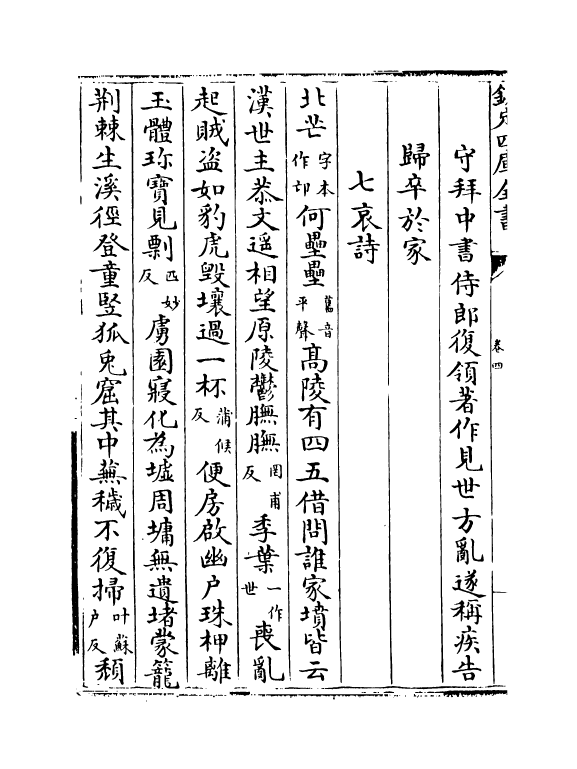 欽定四庫全書
卷四
守拜中書侍郎復領著作見世方亂遂稱疾告
歸卒於家
七哀詩
北芒字本作邙何壘壘舊音平聲高陵有四五借問誰家墳皆云
漢世主恭文遥相望原陵鬱膴膴罔甫反季葉一作世喪亂
起賊盗如豹虎毀壤過一杯蒲候反便房啟幽户珠柙離
玉體珍寶見剽匹妙反虜園寢化為墟周墉無遺堵蒙籠
荆棘生溪徑登童竪狐兎窟其中蕪穢不復掃叶蘇户反頽